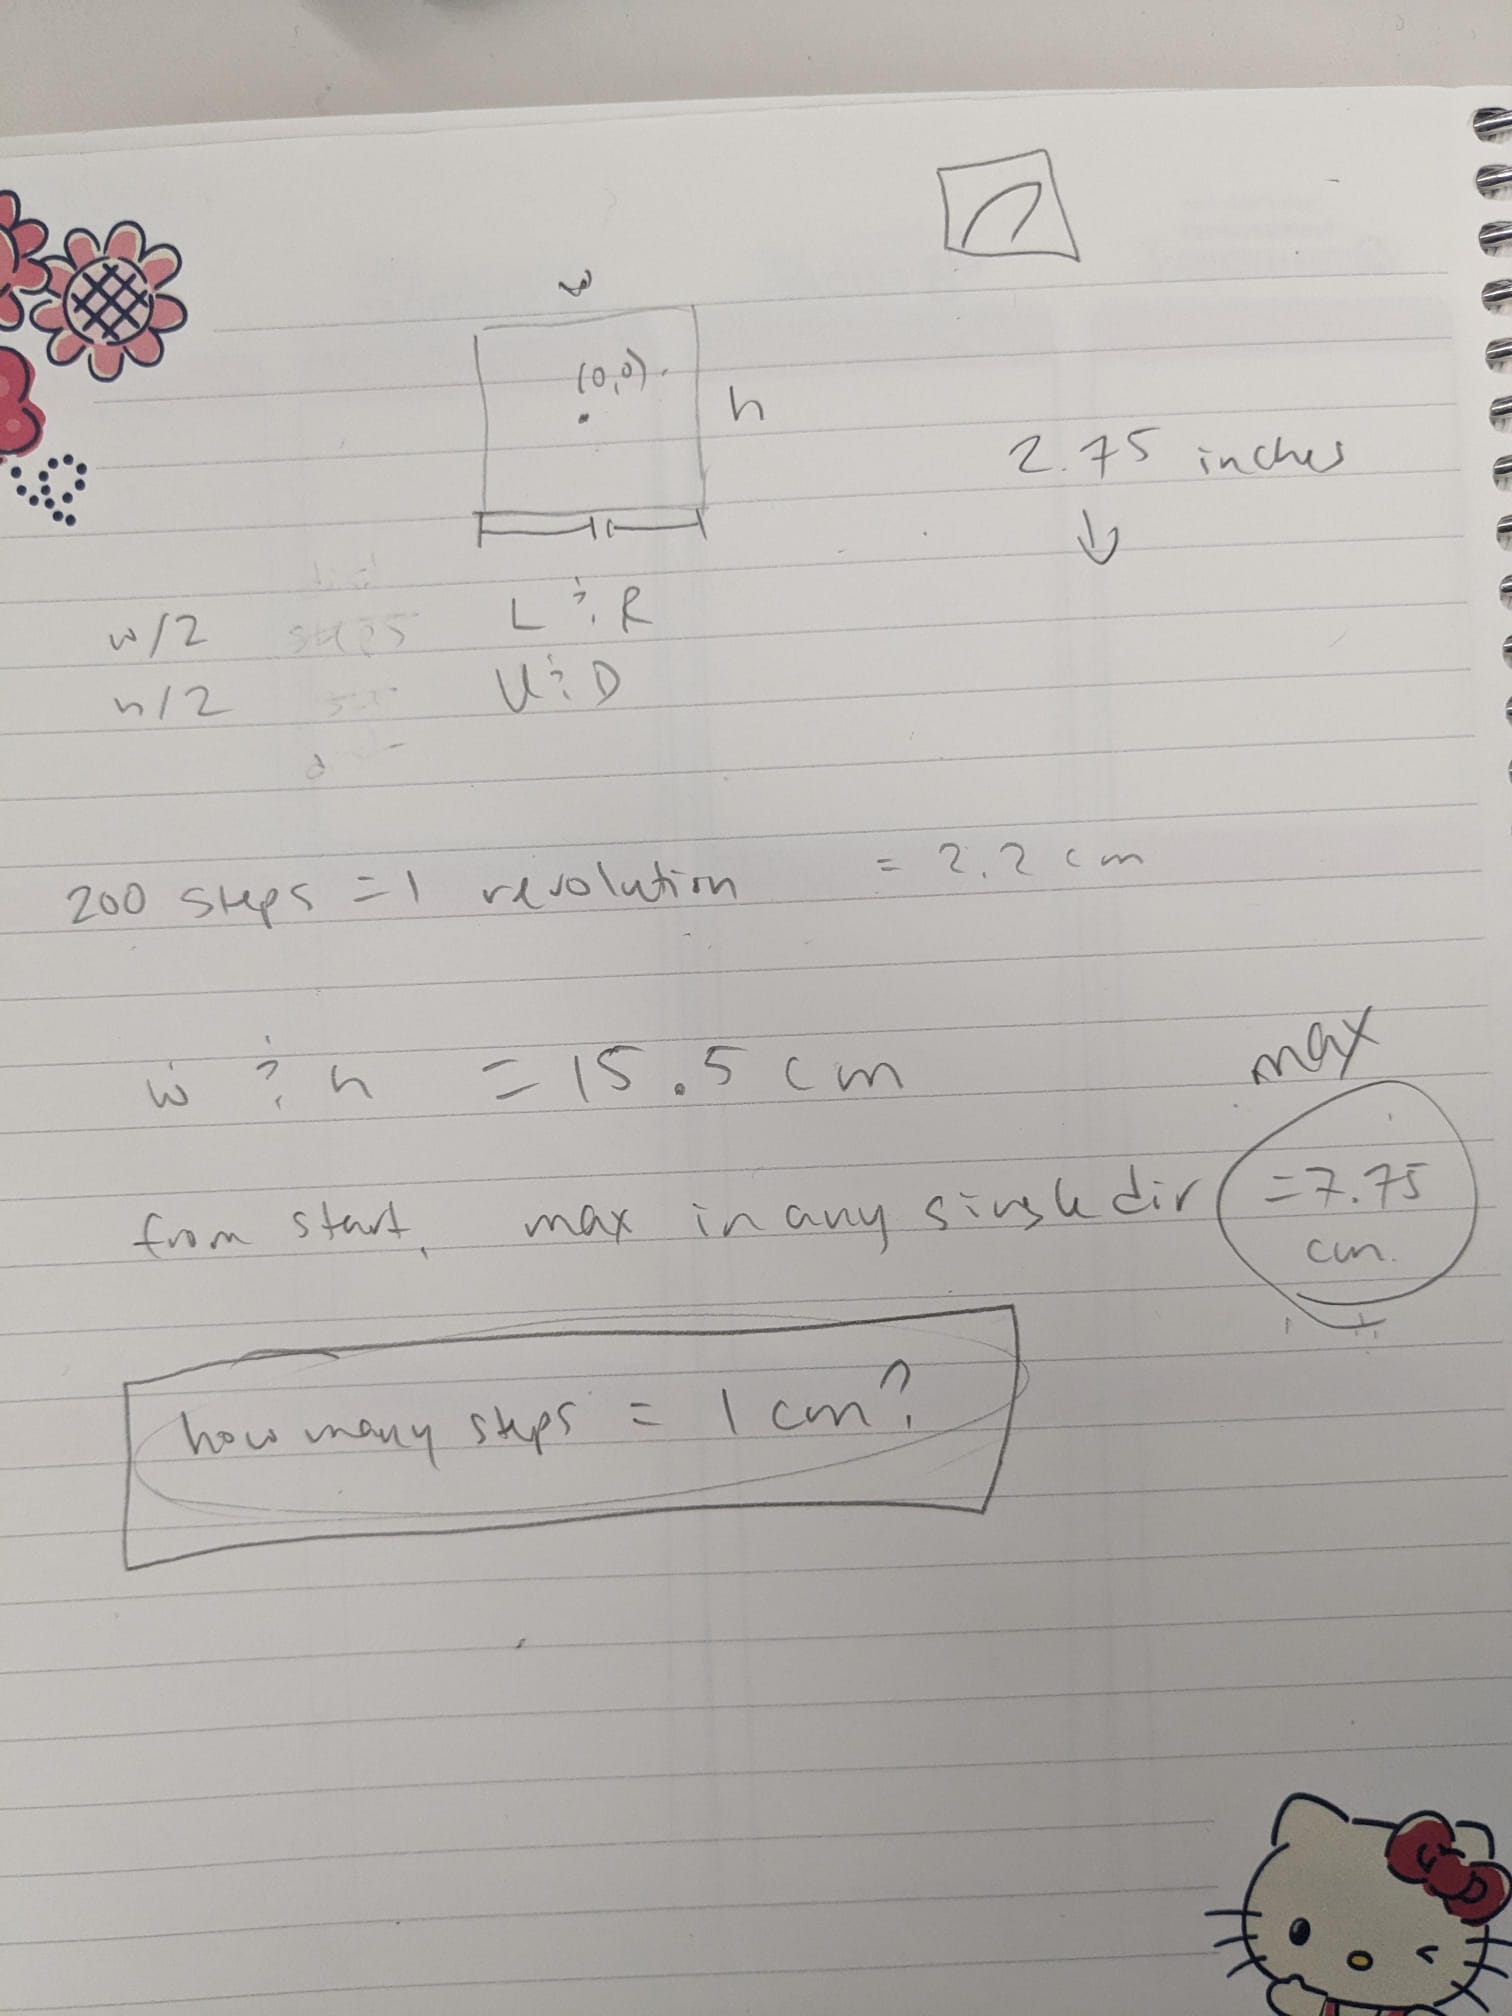 w
(0,0)
h
2.75 inches
w/2 steps L & R
h/2 U & D
200 steps = 1 revolution = 2.2 cm
w & h = 15.5 cm
max
from start, max in any single dir = 7.75
cm.
how many steps = 1 cm?